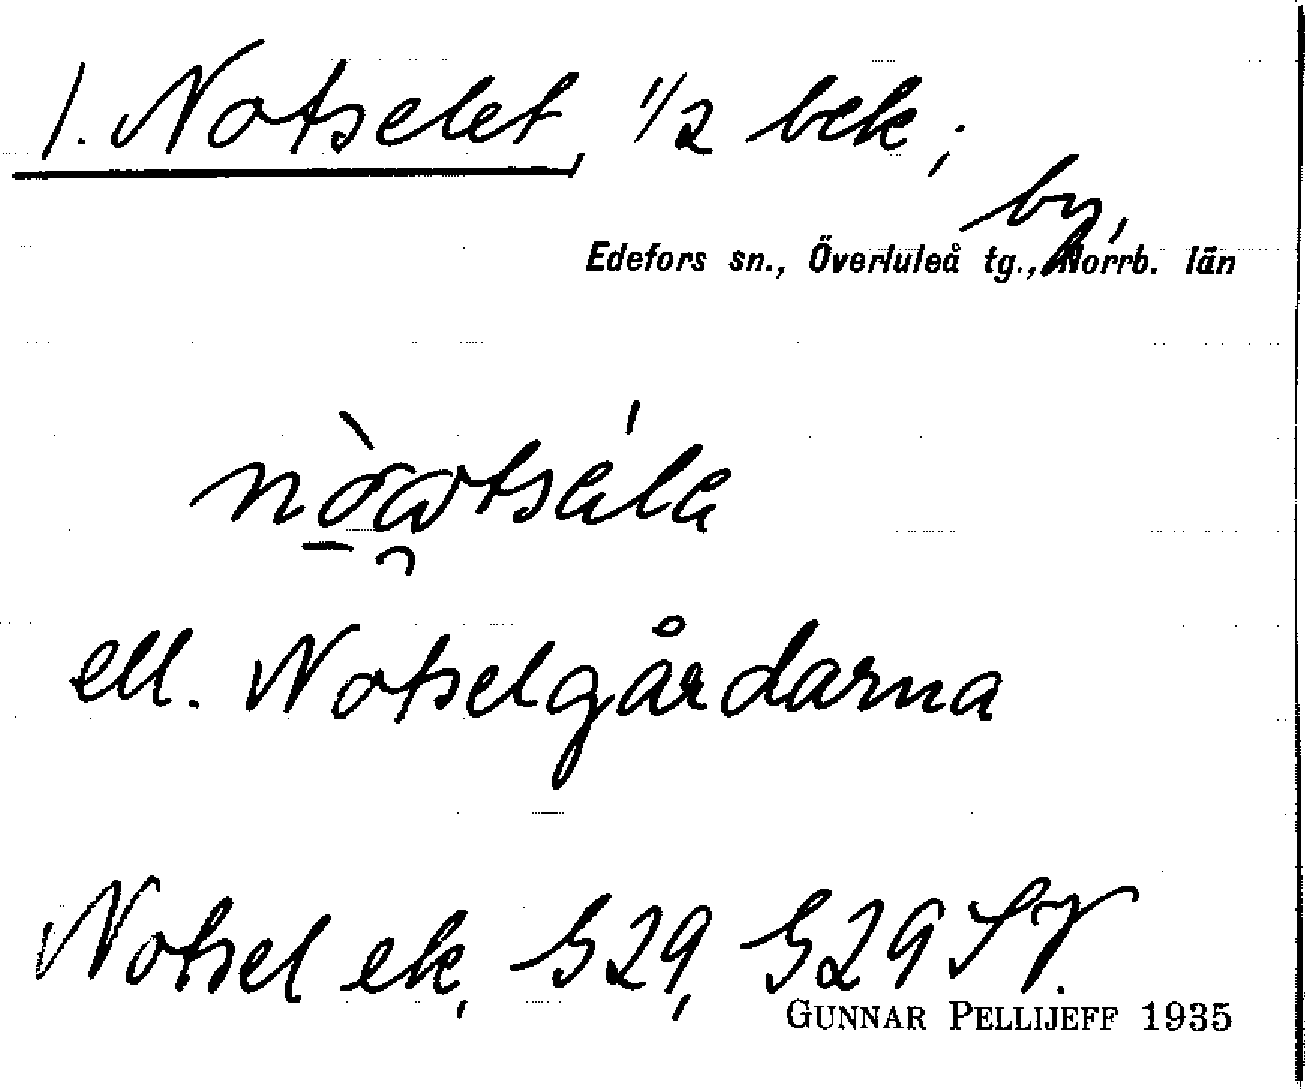 1. Notselet, 1/2 bek;
by,
Edefors sn., Överluleå tg., Norrb. län
ell. Notselgårdarna
Notsel ek, S29, S29 SV.
GUNNAR PELLIJEFF 1935